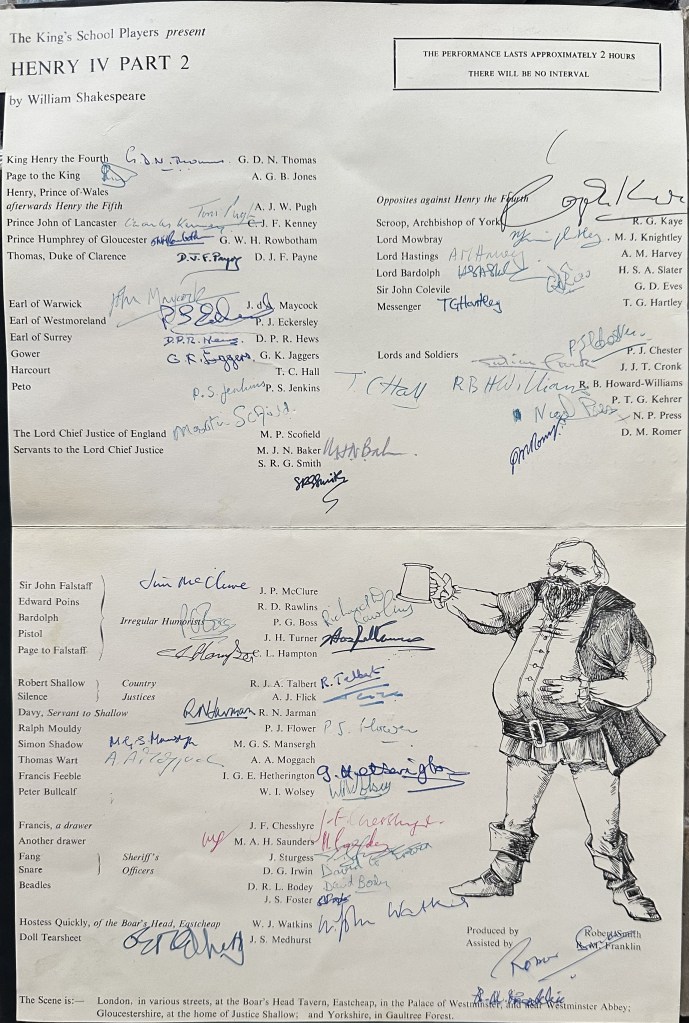 The King's School Players present
HENRY IV PART 2
by William Shakespeare
THE PERFORMANCE LASTS APPROXIMATELY 2 HOURS
THERE WILL BE NO INTERVAL
King Henry the Fourth G. D. N. Thomas G. D. N. Thomas
Page to the King A. G. B. Jones
Henry, Prince of Wales
afterwards Henry the Fifth Toni Pugh A. J. W. Pugh
Prince John of Lancaster Charles Kenney C. J. F. Kenney
Prince Humphrey of Gloucester G. W. H. Rowbotham
Thomas, Duke of Clarence D. J. F. Payne D. J. F. Payne
Earl of Warwick John Maycock J. d Maycock
Earl of Westmoreland P. J. Eckersley
Earl of Surrey D. P. R. Hews D. P. R. Hews
Gower G. K. Jaggers G. K. Jaggers
Harcourt T. C. Hall
Peto P. S. Jenkins P. S. Jenkins
T. C Hall
The Lord Chief Justice of England Martin Scofield M. P. Scofield
Servants to the Lord Chief Justice M. J. N. Baker
S. R. G. Smith
S R G Smith
Opposites against Henry the Fourth
Scroop, Archbishop of York R. G. Kaye
Lord Mowbray M. J. Knightley
Lord Hastings A M Harvey A. M. Harvey
Lord Bardolph H. S. A. Slater
Sir John Colevile G. D. Eves
Messenger T G Hartley T. G. Hartley
Lords and Soldiers P. J. Chester
J. J. T. Cronk
R B H Williams R. B. Howard-Williams
P. T. G. Kehrer
Nigel Press N. P. Press
D. M. Romer
Sir John Falstaff Jim McClure J. P. McClure
Edward Poins R. D. Rawlins Richard D Rawlins
Bardolph Irregular Humorists P. G. Boss
Pistol J. H. Turner
Page to Falstaff C. L. Hampton
Robert Shallow Country R. J. A. Talbert R. Talbert
Silence Justices A. J. Flick
Davy, Servant to Shallow R N Jarman R. N. Jarman
Ralph Mouldy P. J. Flower P J Flower
Simon Shadow M. G. S. Mansergh M. G. S. Mansergh
Thomas Wart A. A. Moggach
Francis Feeble I. G. E. Hetherington G. Hetherington
Peter Bullcalf W. I. Wolsey W I Wolsey
Francis, a drawer J. F. Chesshyre J. F. Chesshyre
Another drawer M. A. H. Saunders
Fang Sheriff's J. Sturgess
Snare Officers D. G. Irwin David G Irwin
Beadles D. R. L. Bodey David Bodey
J. S. Foster
Hostess Quickly, of the Boar's Head, Eastcheap W. J. Watkins W. John Watkins
Doll Tearsheet J. S. Medhurst
Produced by Robert Smith
Assisted by R. M. Franklin
The Scene is:— London, in various streets, at the Boar's Head Tavern, Eastcheap, in the Palace of Westminster, and near Westminster Abbey;
Gloucestershire, at the home of Justice Shallow; and Yorkshire, in Gaultree Forest.